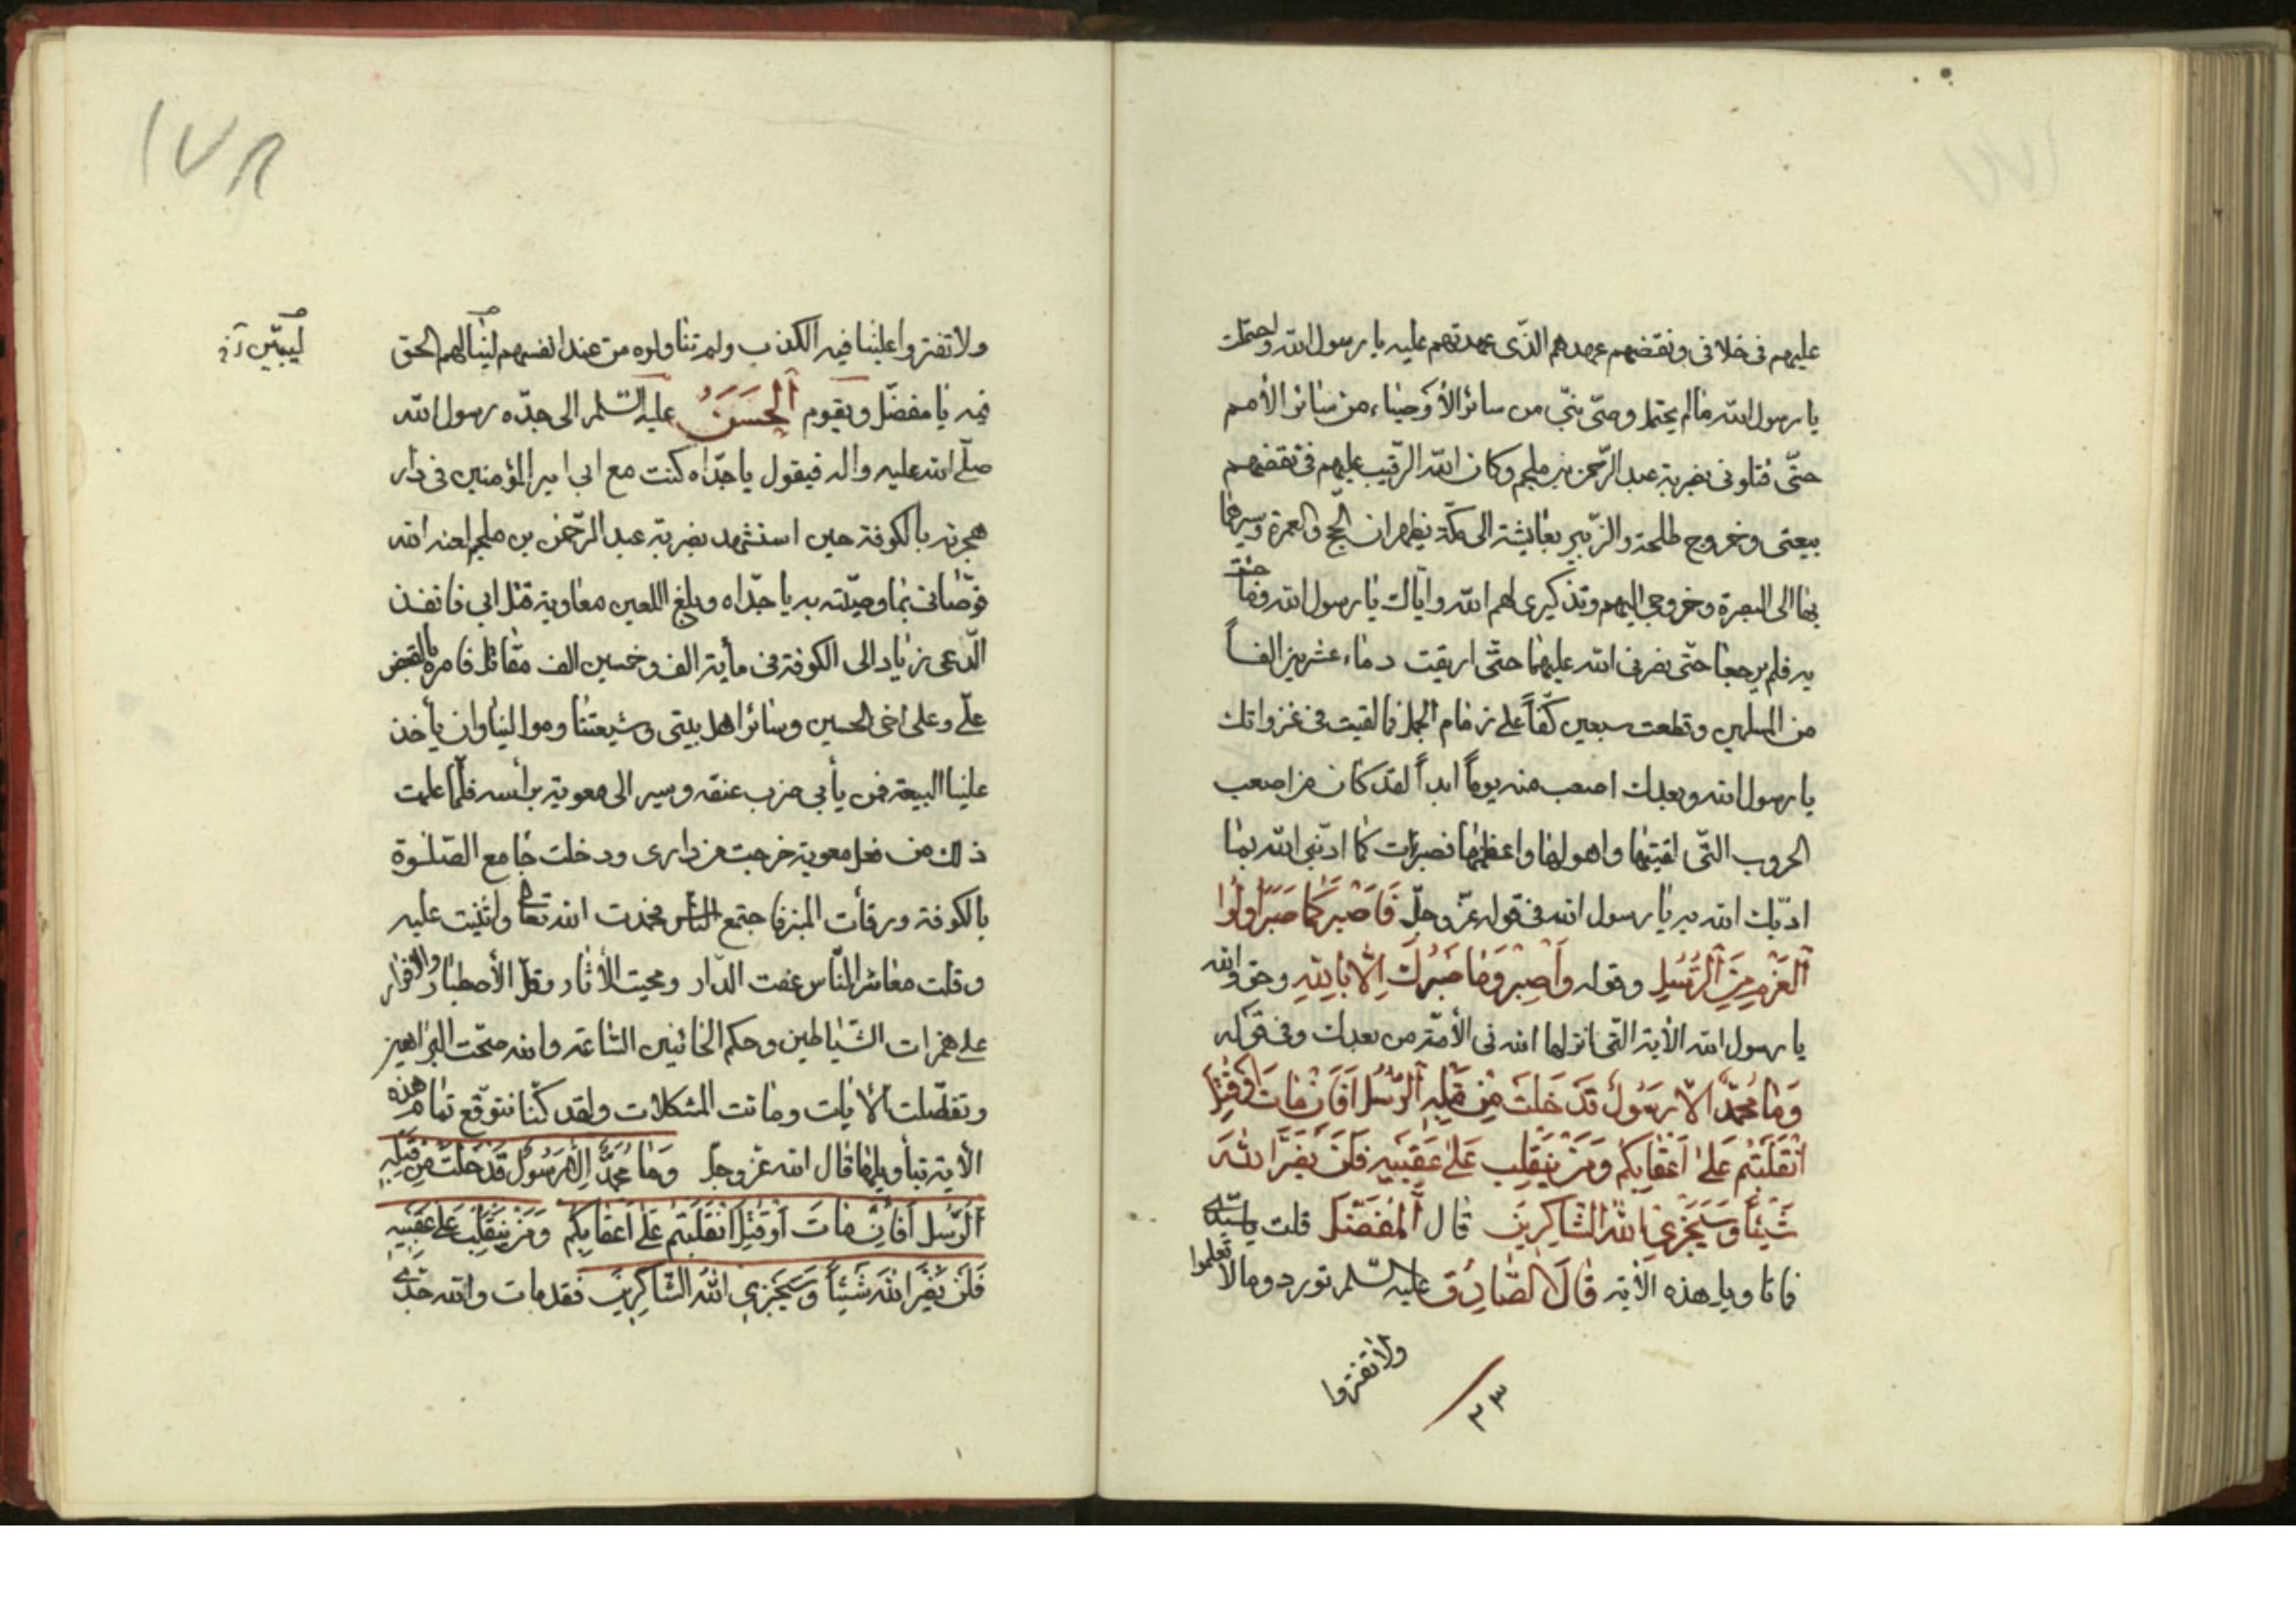 عليهم فى خلافى ونقضهم عهدهم الذّى عهدتهم عليه يا رسول الله واحتملت
يا رسول الله مالم يحتمل وصىّ نبّى من سائر الأوصياء من سائر الأمم
حتّى قتلونى بضربة عبد الرّحمن بن ملجم وكان الله الرقيب عليهم فى نقضهم
بيعتى وخروج طلحة والزّبير بعايشة الى مكّة يظهران الحج والعمرة وسيرهما
بها الى البصرة وخروجى اليهم وتذكيرى لهم الله وايّاك يا رسول الله وما جئت
به فلم يرجعا حتّى نصرنى الله عليهما حتّى اريقت دماء عشرين الفاً
من المسلمين وقطعت سبعين كفّاً على زمام الجمل فما لقيت فى غزواتك
يا رسول الله وبعدك اصعب منه يوماً ابداً لقد كان من اصعب
الحروب التّى لقيتها واهولها واعظمها فصبرت كما ادّبنى الله بما
ادّبك الله به يا رسول الله فى قوله عزّ وجلّ فَاصْبِرْ كَمَا صَبَرَ اُولُوا
اَلْعَزْمِ مِنَ اَلْرُّسُلِ وقوله وَاَصْبِرْ وَمَا صَبْرُكَ اِلّاٰ بِاللهِ وحق والله
يا رسول الله الأية التّى انزلها الله فى الأمّة من بعدك وفى قوله
وَمَا مُحَمَّدٌ اِلّاٰ رَسُولٌ قَدْ خَلَتْ مِنْ قَبْلِهِ اَلْرُّسُلُ اَفَاِنْ مَاتَ اَوْ قُتِلَ
انْقَلَبْتُمْ عَلىٰ اَعْقَابِكُمْ وَمَنْ يَنْقَلِبْ عَلىٰ عَقِبَيْهِ فَلَنْ يَضُرَّ اللهَ
شَيْئاً وَسَيَجْزِي اللهُ الشَّاكِرِينَ قال اَلْمُفَضَّل قلت يا سيّدى
فما تاويل هذه الأية قَالَ الصَّادِق عليه السّلم تورد وما لا تعلموا
ولا تفتروا
٣٣
١٧٨
ولا تفتروا علينا فيه الكذب ولم تتناولوه من عند انفسهم لينالهم الحق
ليبيّن
فيه يا مفضّل ويقوم اَلْحَسَنُ عليه السّلم الى جدّه رسول الله
صلّى الله عليه واله فيقول يا جدّاه كنت مع ابى امير المؤمنين فى دار
هجرته بالكوفة حين استشهد بضربة عبد الرّحمن بن ملجم لعنه الله
فوصّانى بما وصيّته به يا جدّاه وبلغ اللعين معاوية قتل ابى فانفذ
الدّعى زياد الى الكوفة فى مأية الف وخمسين الف مقاتل فامره بالقبض
علّى وعلى اخى الحسين وسائر اهل بيتى وشيعتنا وموالينا وان يأخذ
علينا البيعة فمن يأبى ضرب عنقه وسير الى معوية برأسه فلمّا علمت
ذلك من فعل معوية خرجت من دارى ودخلت جامع الصّلوة
بالكوفة ورقأت المنبر فاجتمع النّاس فحمدت الله تعالى واثنيت عليه
وقلت معاشر النّاس عفت الدّار ومحيت الأثار وقلّ الأصطبار والاقرار
على همزات الشّياطين وحكم الخائنين السّاعة والله صحّت البراهين
وتفصّلت الأيات ومانت المشكلات ولقد كنّا نتوقّع تمام هذه
الأية تبأويلها قال الله عزّ وجلّ وَمَا مُحَمَّدٌ اِلّاٰ رَسُولٌ قَدْ خَلَتْ مِنْ قَبْلِهِ
اَلْرُّسُل اَفَاِنْ مَاتَ اَوْ قُتِلَ انْقَلَبْتُمْ عَلىٰ اَعْقَابِكُمْ وَمَنْ يَنْقَلِبْ عَلىٰ عَقِبَيْهِ
فَلَنْ يَضُرَّ اللهَ شَيْئاً وَسَيَجْزِي اللهُ الشَّاكِرِينَ فقد مات والله جدّى